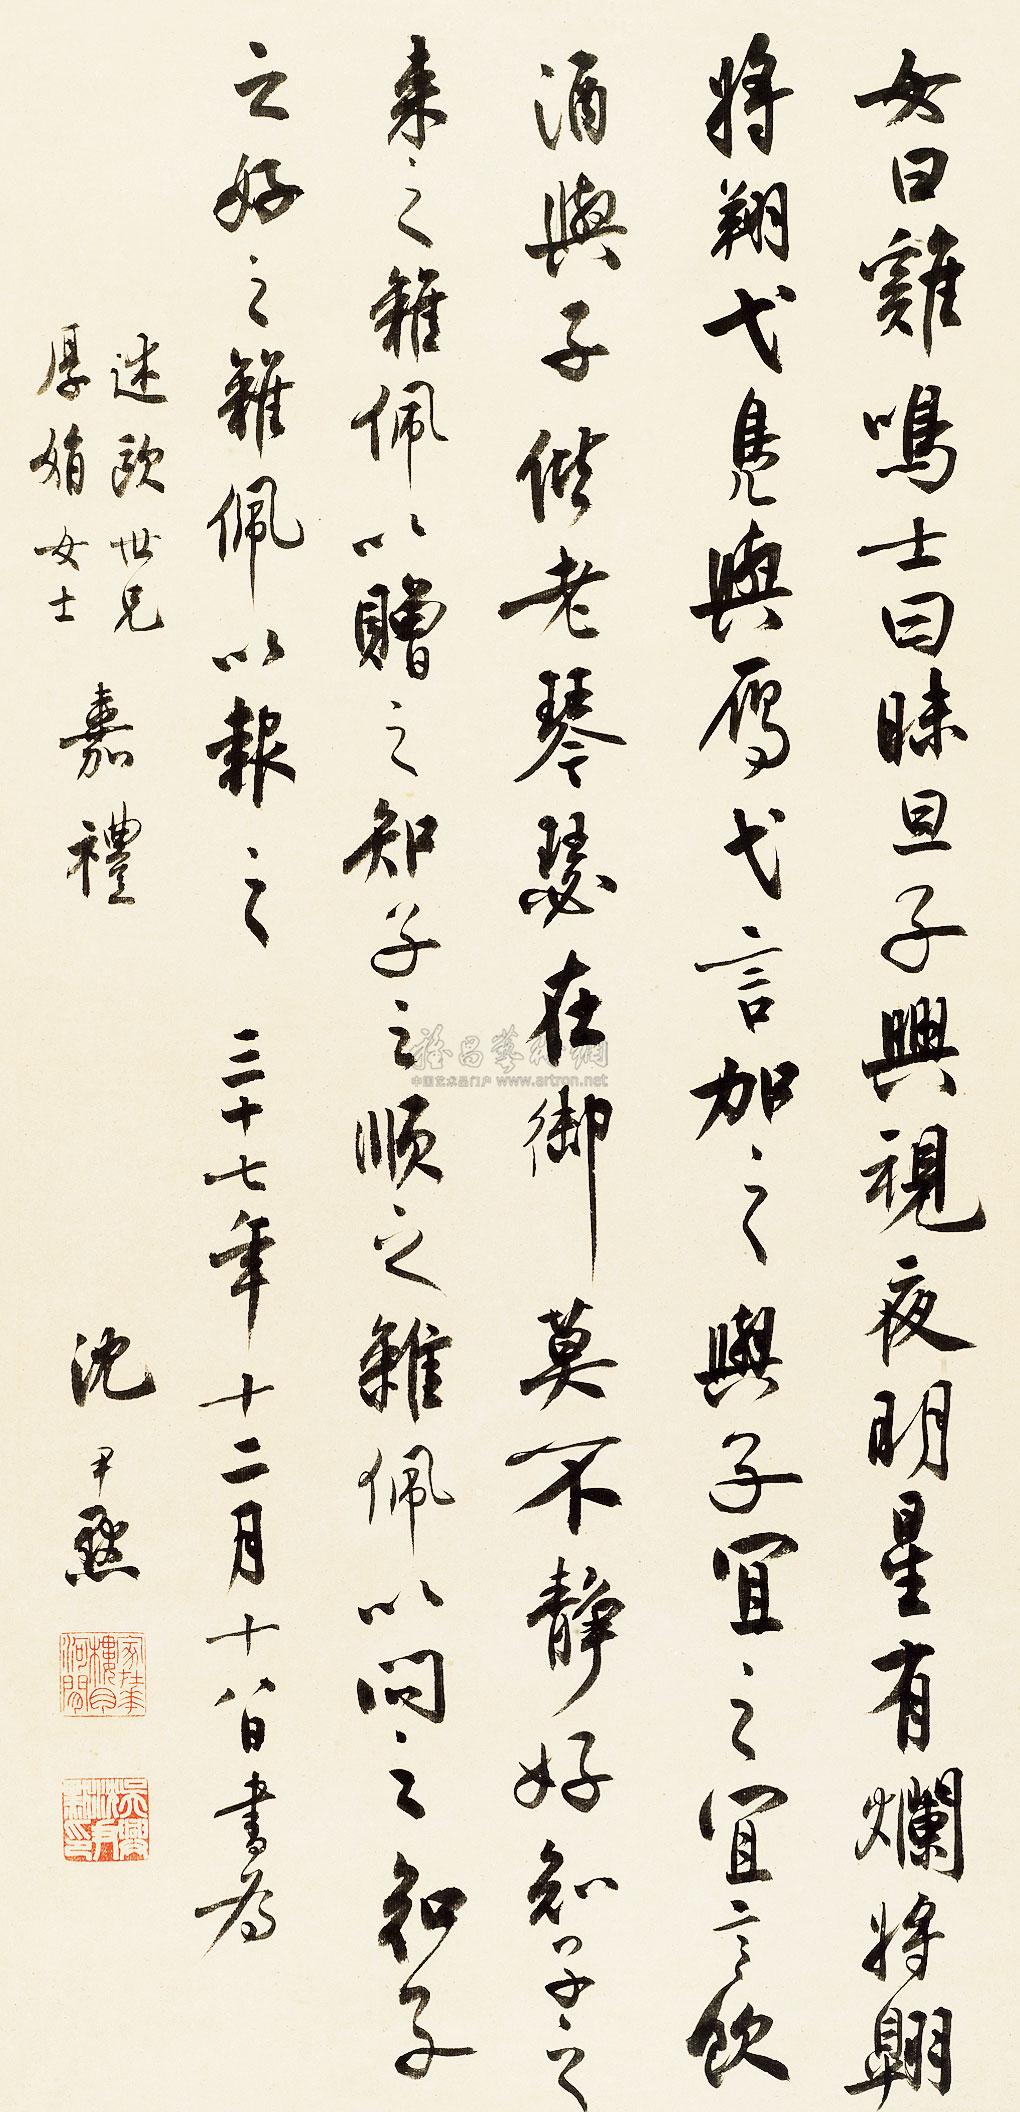 女曰雞鳴士曰昧旦子興視夜明星有爛將翱
將翔弋鳧與鴈弋言加之與子宜之宜言飲
酒與子偕老琴瑟在御莫不靜好知子之
来之雜佩以贈之知子之順之雜佩以問之知子
之好之雜佩以報之 三十七年十二月十八日書為
述歐世兄
厚娟女士 嘉禮 沈尹默
中国艺术品门户 www.artron.net